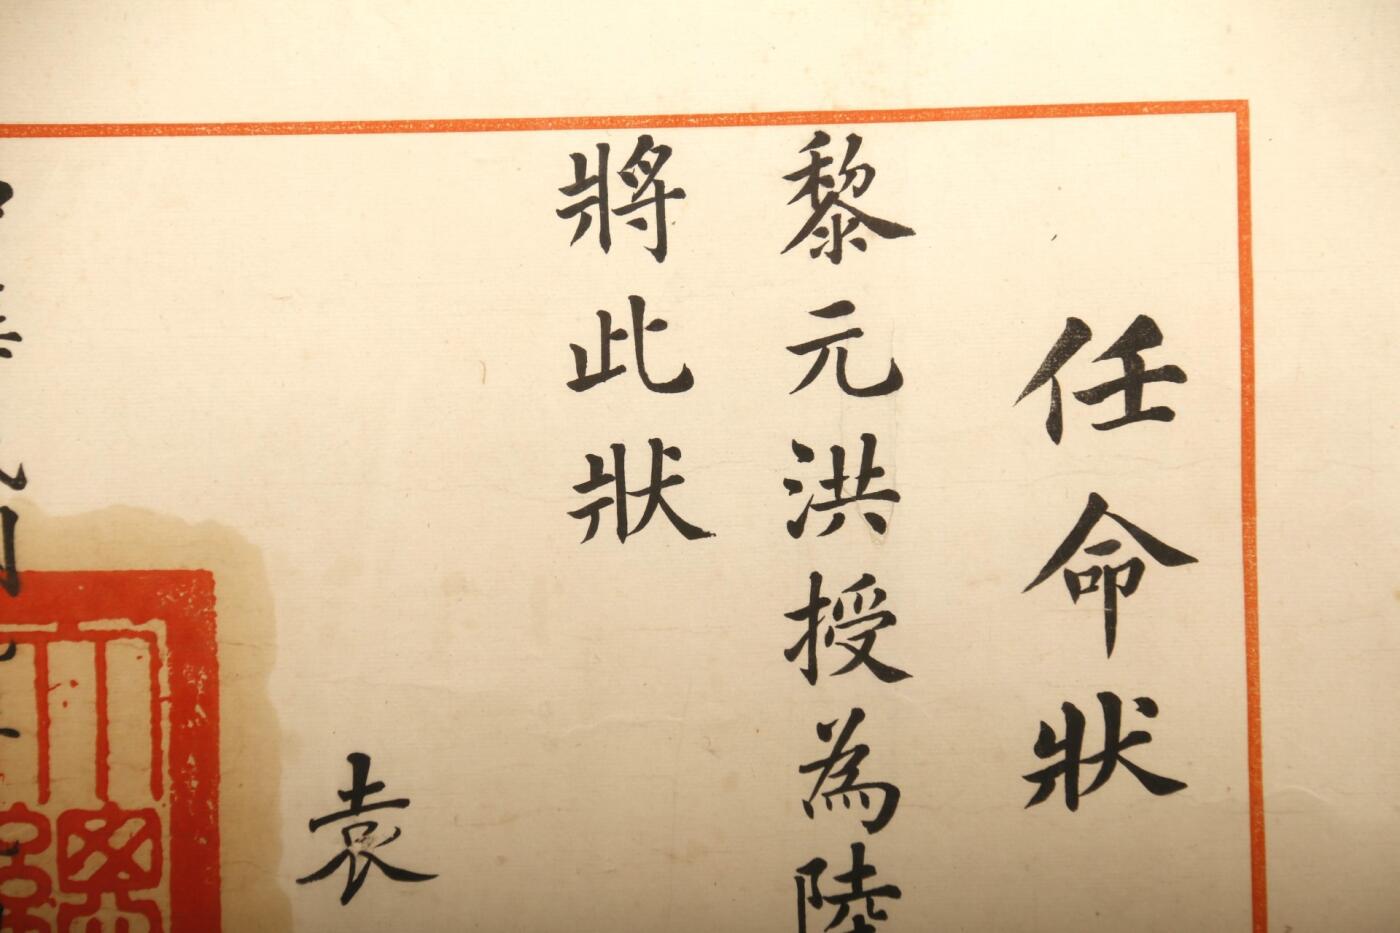 任命狀
黎元洪授為陸
將此狀
袁